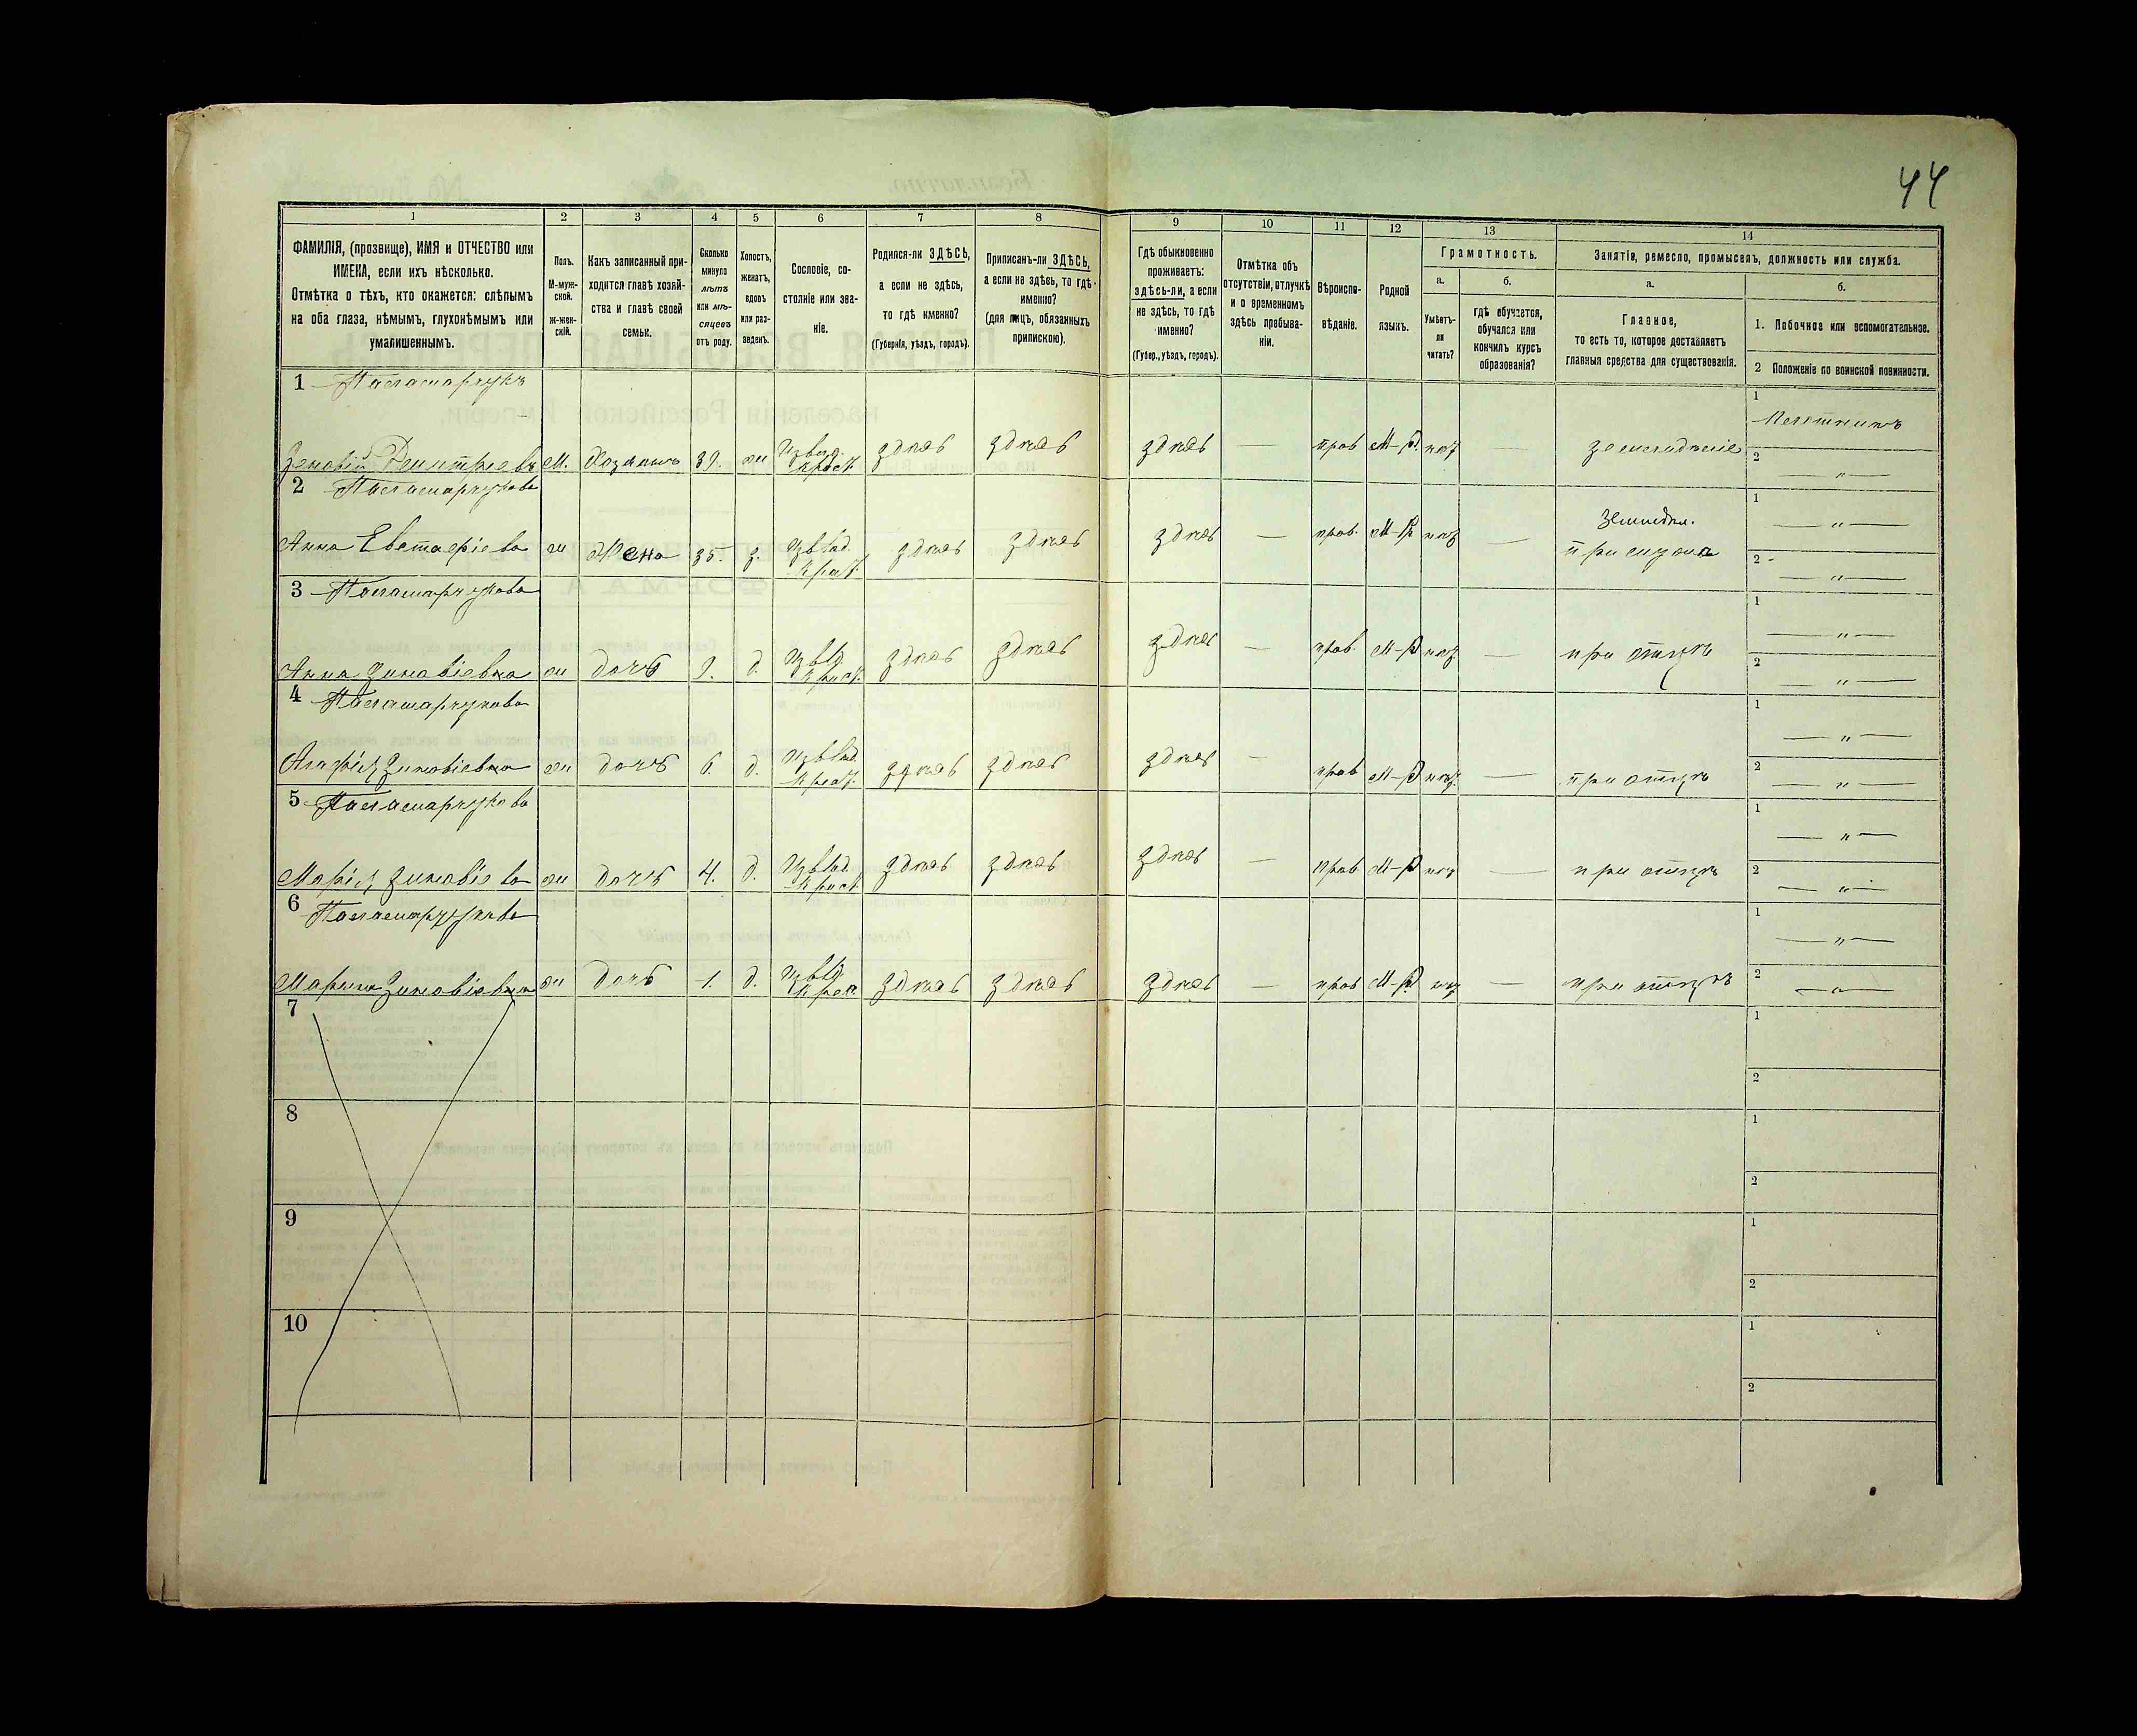 44
1
2
3
4
5
6
7
8
9
10
11
12
13
14
ФАМИЛІЯ, (прозвище), ИМЯ и ОТЧЕСТВО или
ИМЕНА, если ихъ нѣсколько.
Отмѣтка о тѣхъ, кто окажется: слѣпымъ
на оба глаза, нѣмымъ, глухонѣмымъ или
умалишеннымъ.
Полъ.
М-муж-
ской.
ж-жен-
скій.
Какъ записанный при-
ходится главѣ хозяй-
ства и главѣ своей
семьи.
Сколько
минуло
лѣтъ
или мѣ-
сяцевъ
отъ роду.
Холостъ,
женатъ,
вдовъ
или раз-
веденъ.
Сословіе, со-
стояніе или зва-
ніе.
Родился-ли ЗДѢСЬ,
а если не здѣсь,
то гдѣ именно?
(Губернія, уѣздъ, городъ).
Приписанъ-ли ЗДѢСЬ,
а если не здѣсь, то гдѣ
именно?
(для лицъ, обязанныхъ
припискою).
Гдѣ обыкновенно
проживаетъ:
здѣсь-ли, а если
не здѣсь, то гдѣ
именно?
(Губер., уѣздъ, городъ).
Отмѣтка объ
отсутствіи, отлучкѣ
и о временномъ
здѣсь пребыва-
ніи.
Вѣроиспо-
вѣданіе.
Родной
языкъ.
Грамотность.
а.
Умѣетъ-
ли
читать?
б.
гдѣ обучается,
обучался или
кончилъ курсъ
образованія?
Занятія, ремесло, промыселъ, должность или служба.
а.
Главное,
то есть то, которое доставляетъ
главныя средства для существованія.
б.
1. Побочное или вспомогательное.
2 Положеніе по воинской повинности.
1
Зеновій Дмитріевъ М. Хозяинъ 39. ж здѣсь здѣсь здѣсь — прав М-Р. — земледѣліе
1
2 — " —
2
Анна Евстафіева ж Жена 35. з. здѣсь здѣсь здѣсь — прав. М-Р —
при мужѣ
1 — " —
2 — " —
3
Анна Зиновіевна ж дочь 9. д. здѣсь здѣсь здѣсь — прав. М-Р — при отцѣ
1 — " —
2 — " —
4
Агафія Зиновіевна ж дочь 6. д. здѣсь здѣсь здѣсь — прав М-Р — при отцѣ
1 — " —
2 — " —
5
Марія Зиновіева ж дочь 4. д. здѣсь здѣсь здѣсь — прав М-Р — при отцѣ
1 — " —
2 — " —
6
Марина Зиновіевна ж дочь 1. д. здѣсь здѣсь здѣсь — прав М-Р — при отцѣ
1 — " —
2 — " —
7
1
2
8
1
2
9
1
2
10
1
2